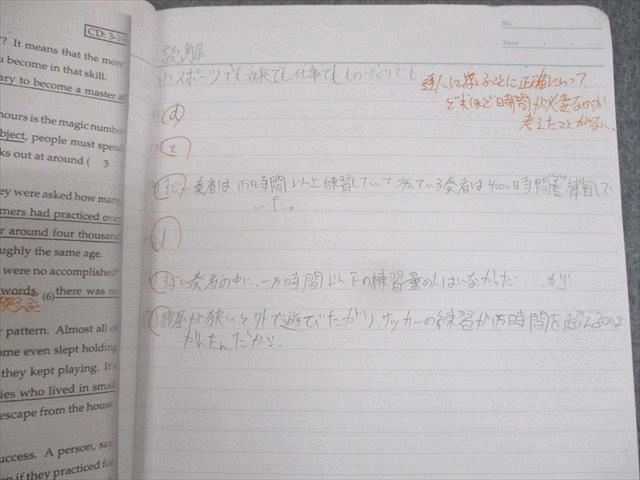 CD: 3-
? It means that the more
u become in that skill.
ary to become a master at
hours is the magic number
bject, people must spend
ks out at around ( 3
ey were asked how many
mers had practiced over
r around four thousand
ughly the same age.
were no accomplished
words, (6) there was no
r pattern. Almost all of
ome even slept holding
they kept playing. It's
ies who lived in small
escape from the house
uccess. A person, say,
n if they practiced for
No.
Date
読解
(1) スポーツでも音楽でも、仕事でもものづくりでも
達人に
正確にいって
どれほど時間が必要なのか
考えたことがない。
d
2
奏者は 1万時間以上練習していて、
奏者は4000時間 練習して
いた。
1
奏者の中に、一万時間以下の練習量の人はいなかった
部屋が狭いと外で遊びたがり、サッカーの練習が1万時間を超えるのは
かんたんだから。